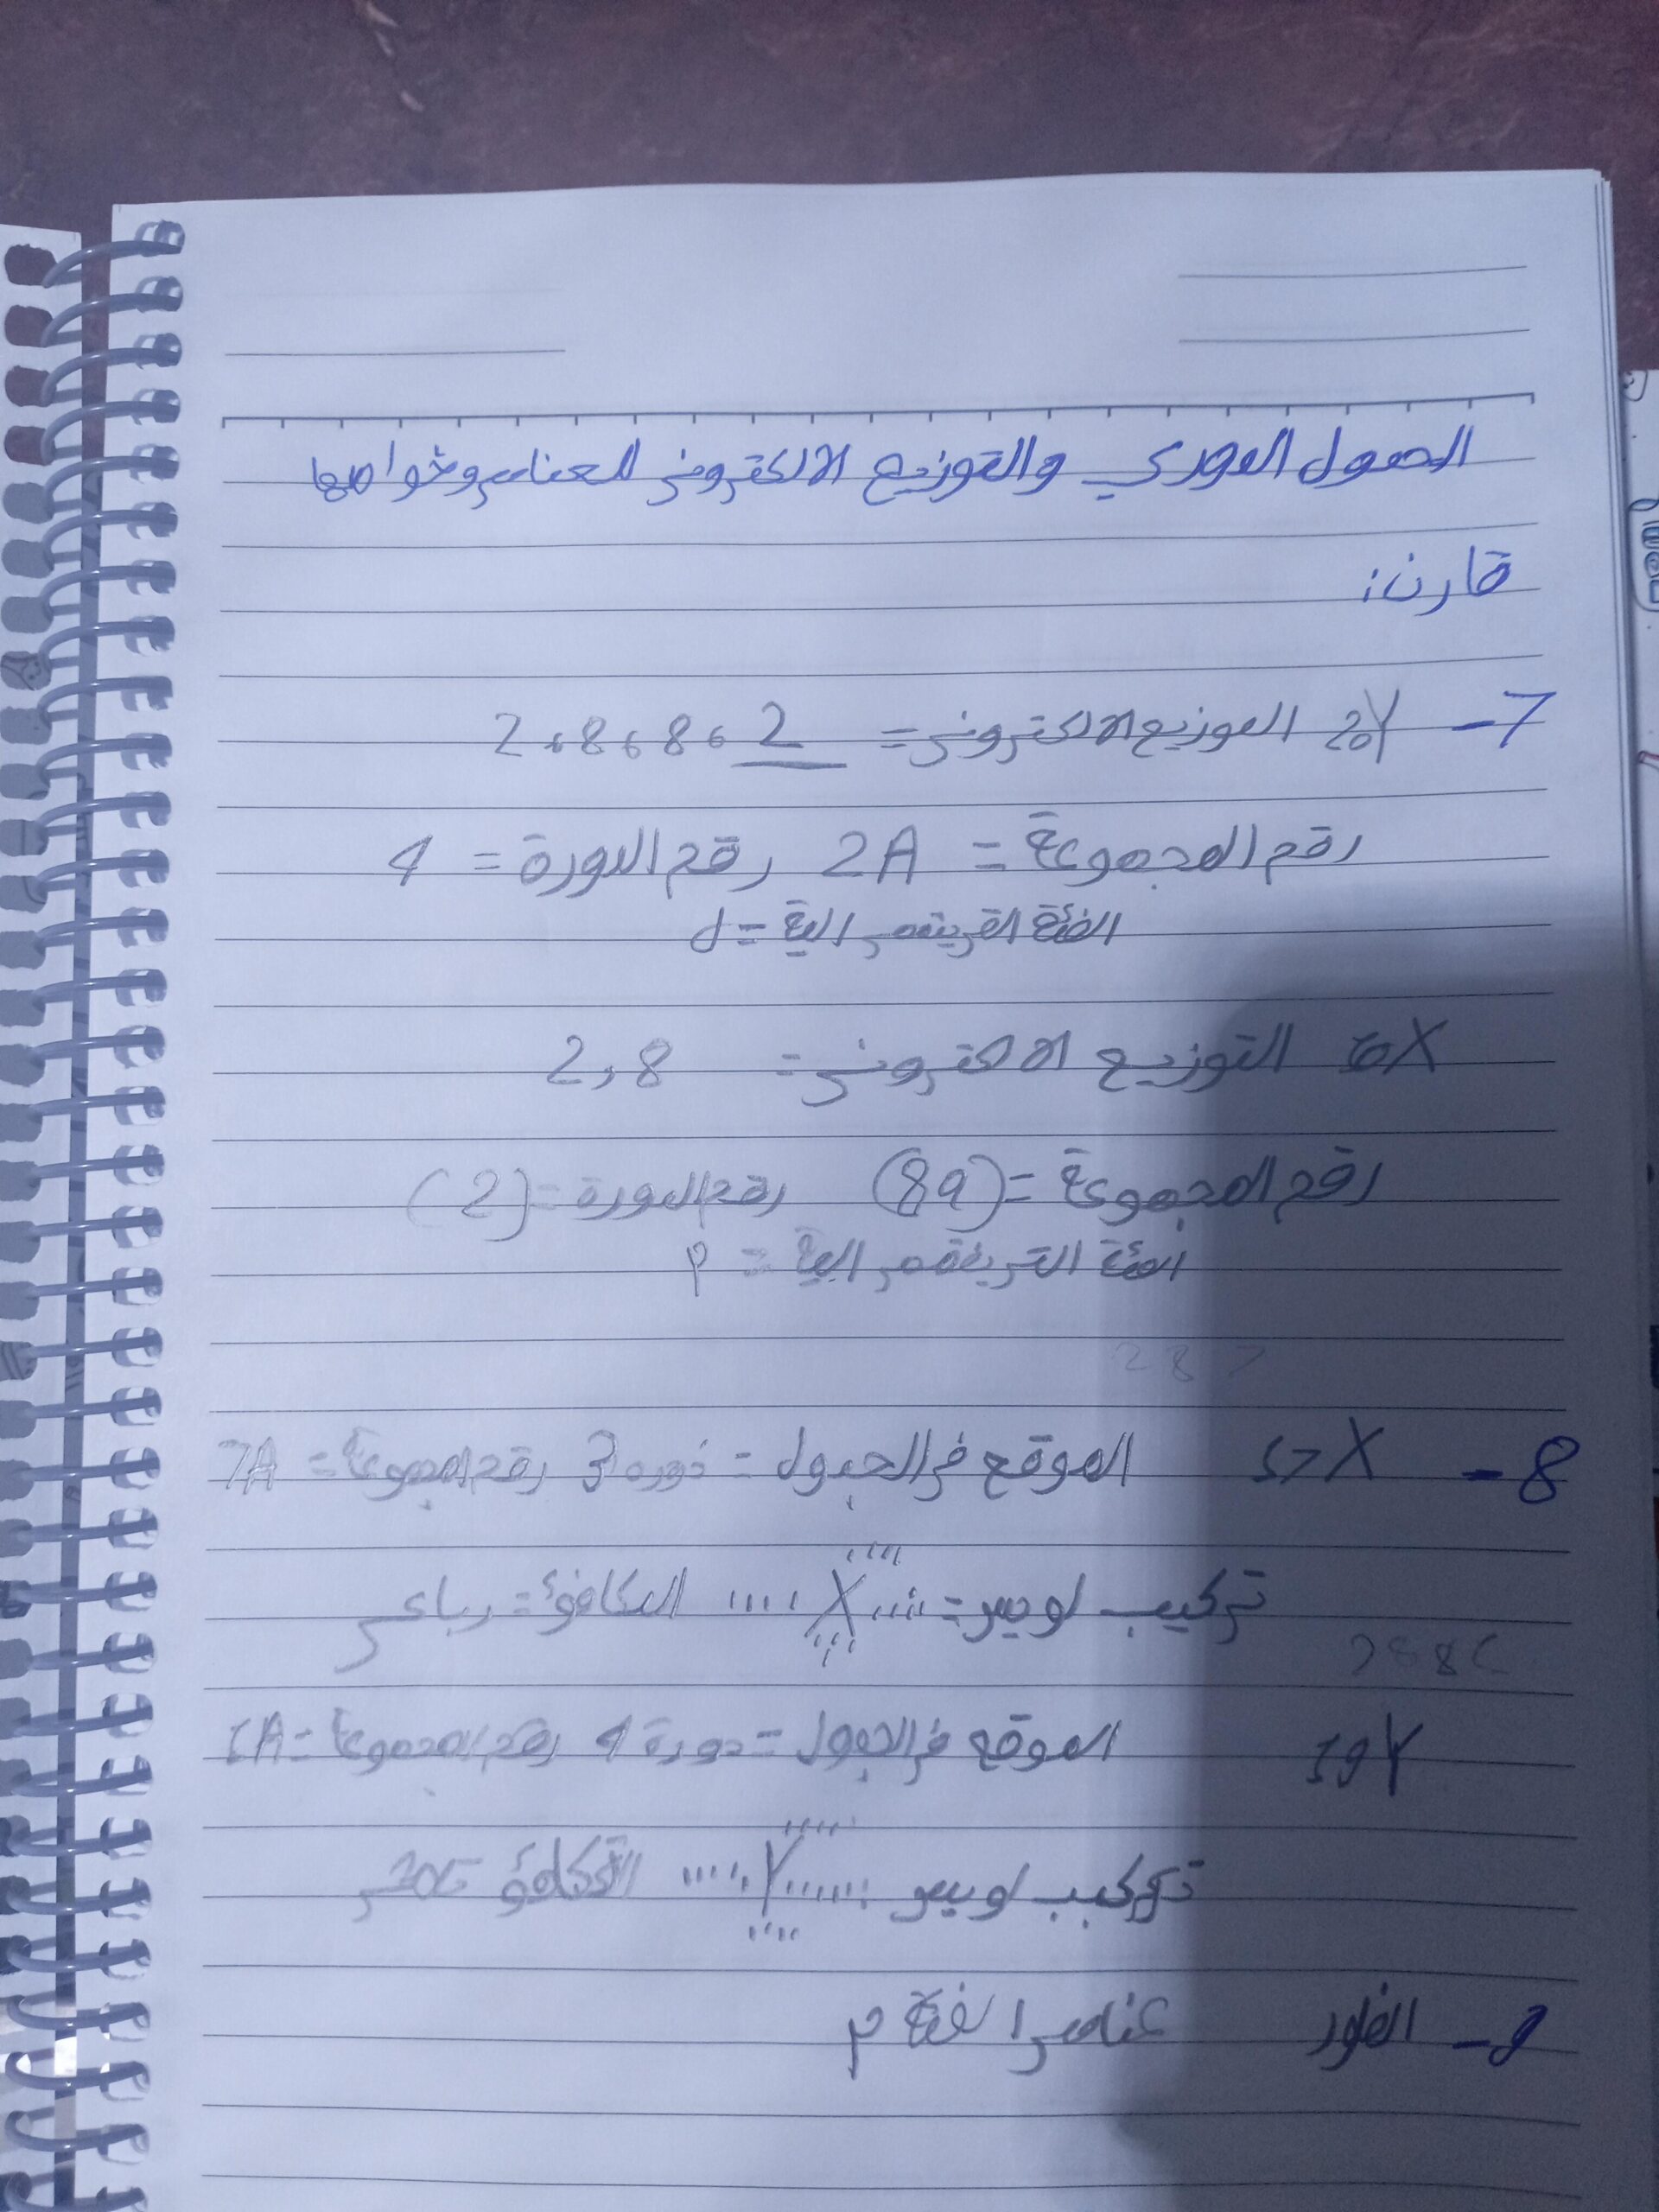 الجدول الدوري والتوزيع الالكتروني للعناصر وخواصها
قارن:
7- 20Y التوزيع الالكتروني = 2،8،8،2
رقم المجموعة = 2A رقم الدورة = 4
الفئة الفرعية =
10X التوزيع الالكتروني = 2,8
رقم المجموعة = (8a) رقم الدورة = (2)
الفئة = p
2 8 7
8- 17X الموقع في الجدول = دورة 3 رقم المجموعة = 7A
تركيب لويس = X التكافؤ = رباعي
2 8 8
19Y الموقع في الجدول = دورة 4 رقم المجموعة = 1A
تركيب لويس Y التكافؤ
9- الفلور عناصر الفئة p